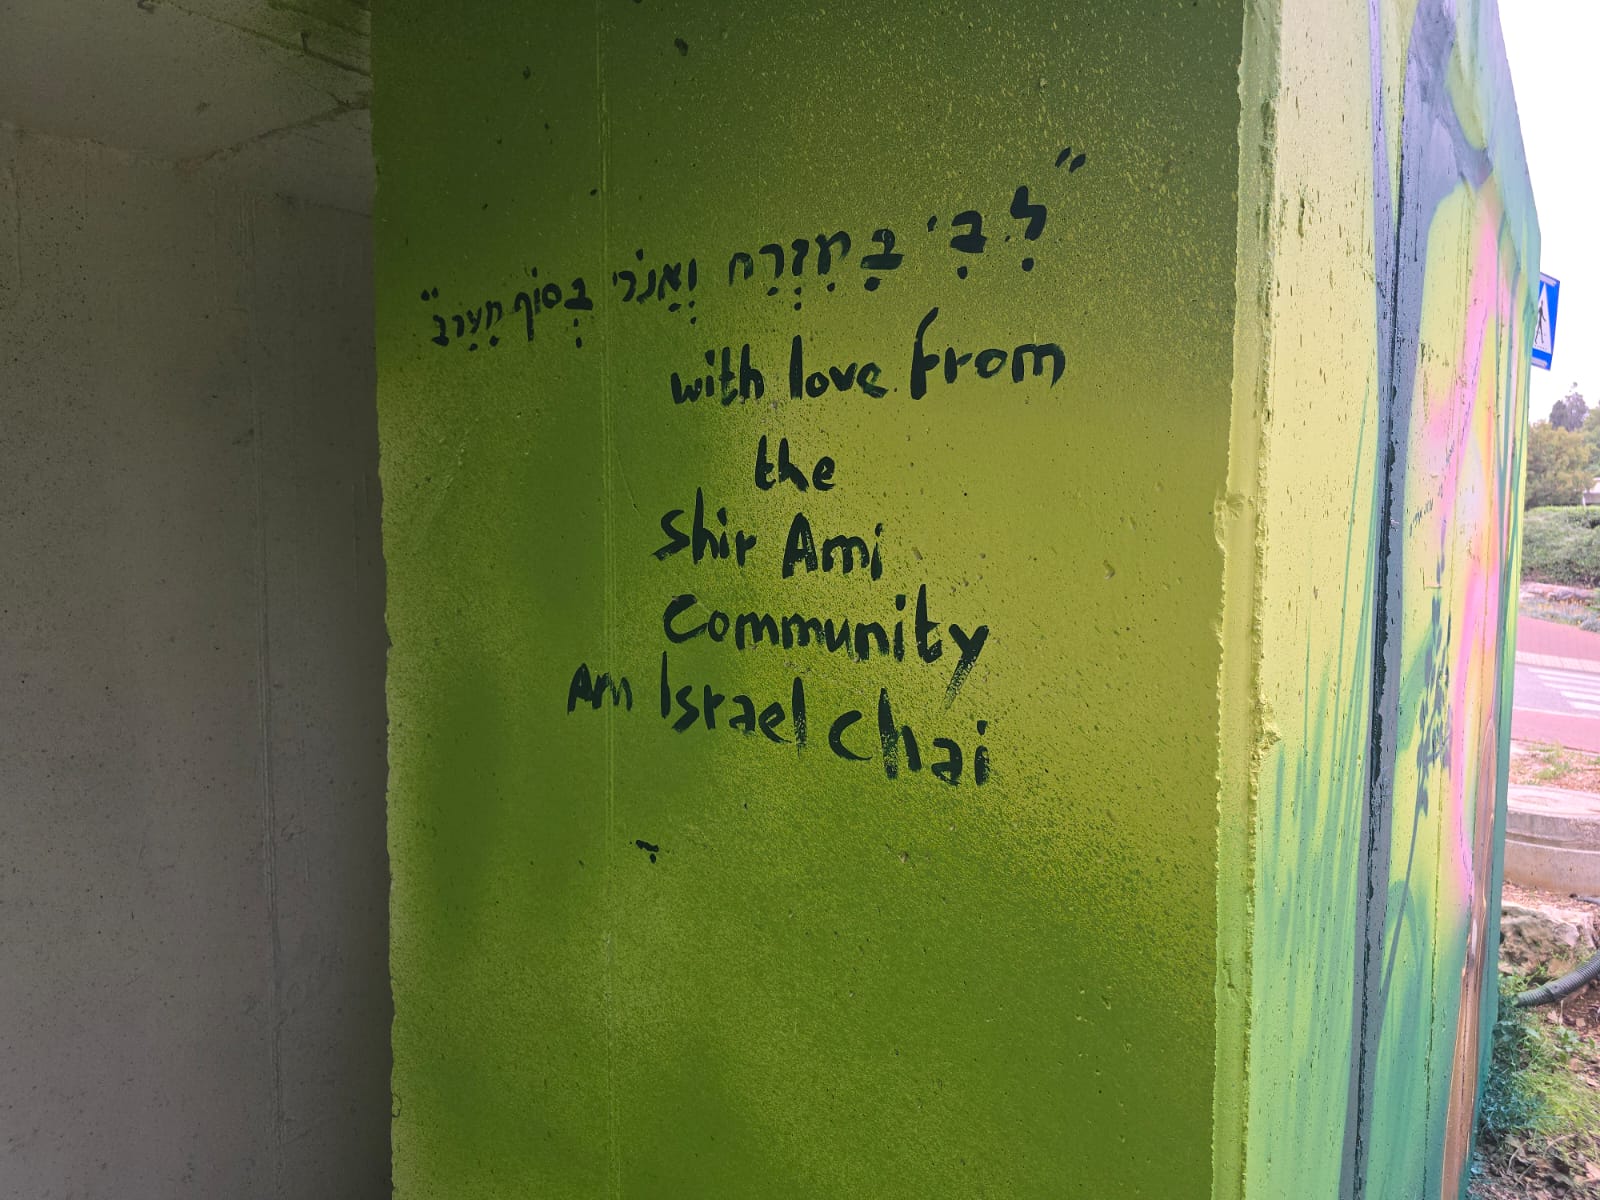 "לִבִּי בְּמִזְרָח וְאָנֹכִי בְּסוֹף מַעֲרָב"
with love from
the
Shir Ami
Community
Am Israel Chai